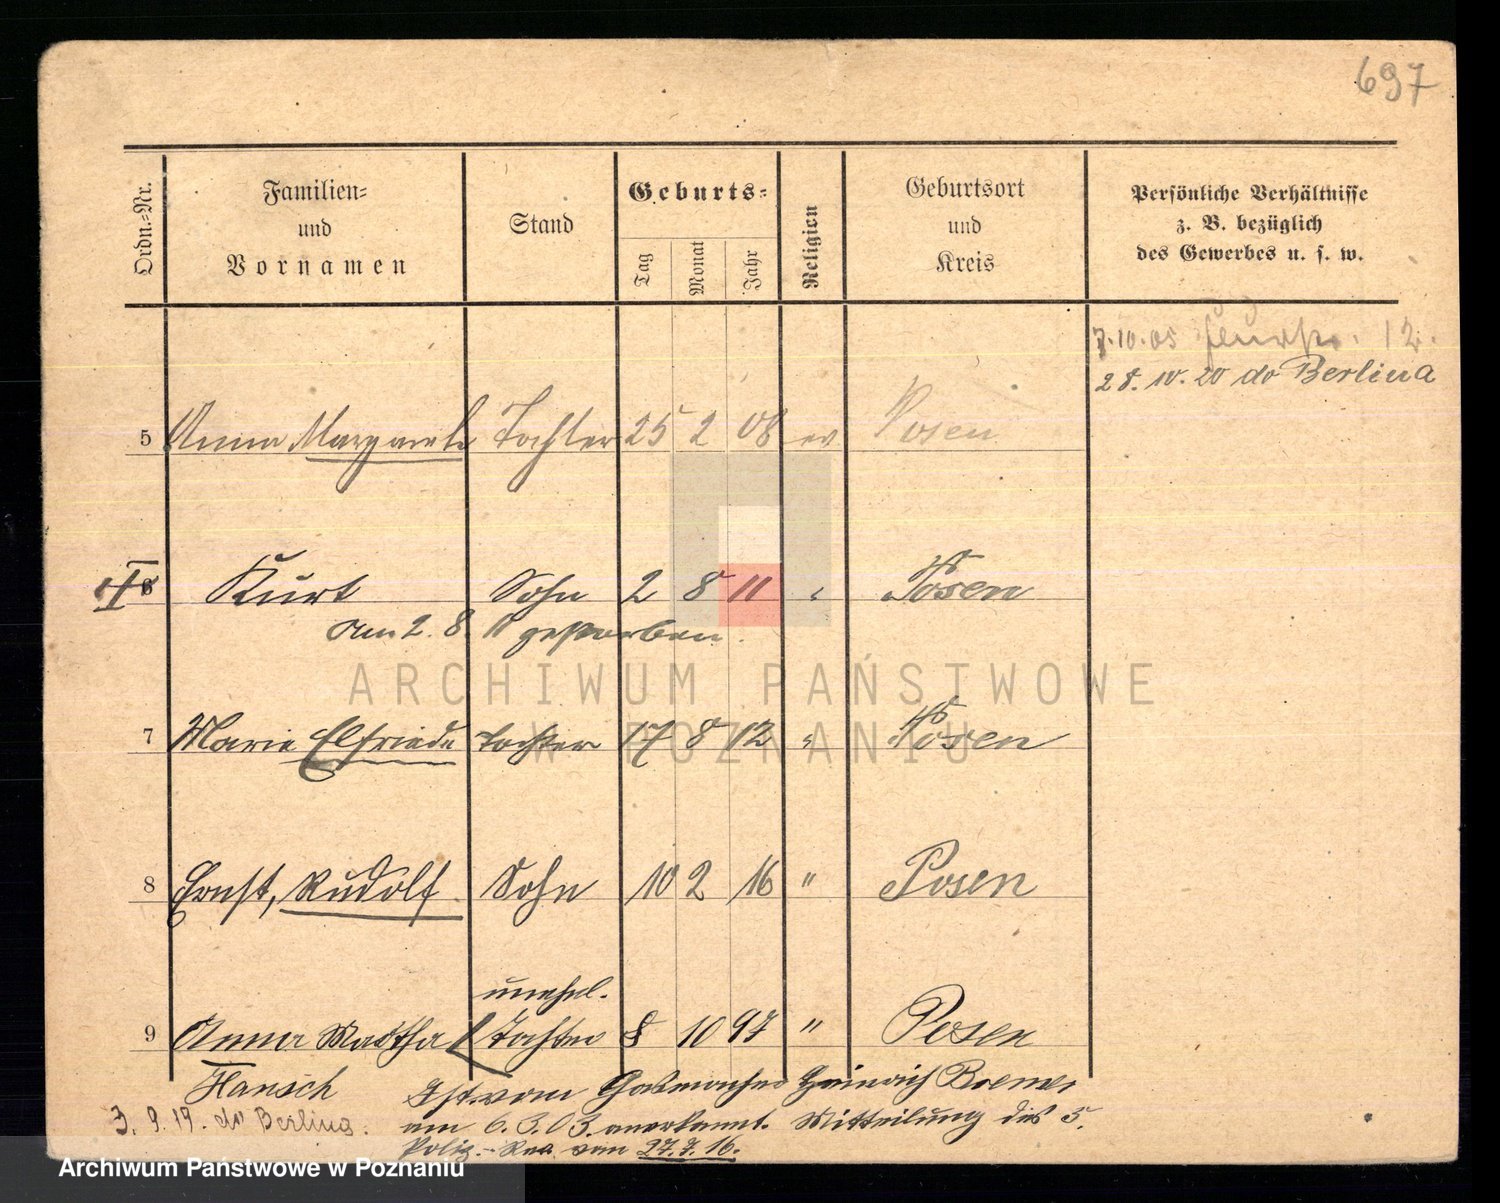 697
Ordn.=Nr.
Familien=
und
Vornamen
Stand
Geburts=
Tag
Monat
Jahr
Religion
Geburtsort
und
Kreis
Persönliche Verhältnisse
z. B. bezüglich
des Gewerbes u. s. w.
7.10.05 12.
28.10.20 do Berlina
5 Anna Margarete Tochter 25 2 08 ev Posen
II 6 Kurt Sohn 2 8 11 " Posen
am 2. 8. 11 gestorben.
7 Marie Elfriede Tochter 17 8 12 " Posen
8 Ernst, Rudolf Sohn 10 2 16 " Posen
unehel.
9 Anna Martha Tochter 8 10 97 " Posen
Hansch Ist vom Heinrich
3. 9. 19. do Berlina. am 6.3.03 anerkannt. Mitteilung des 5.
Poliz.-Rev. vom 27.7.16.
ARCHIWUM PAŃSTWOWE
W POZNANIU
Archiwum Państwowe w Poznaniu